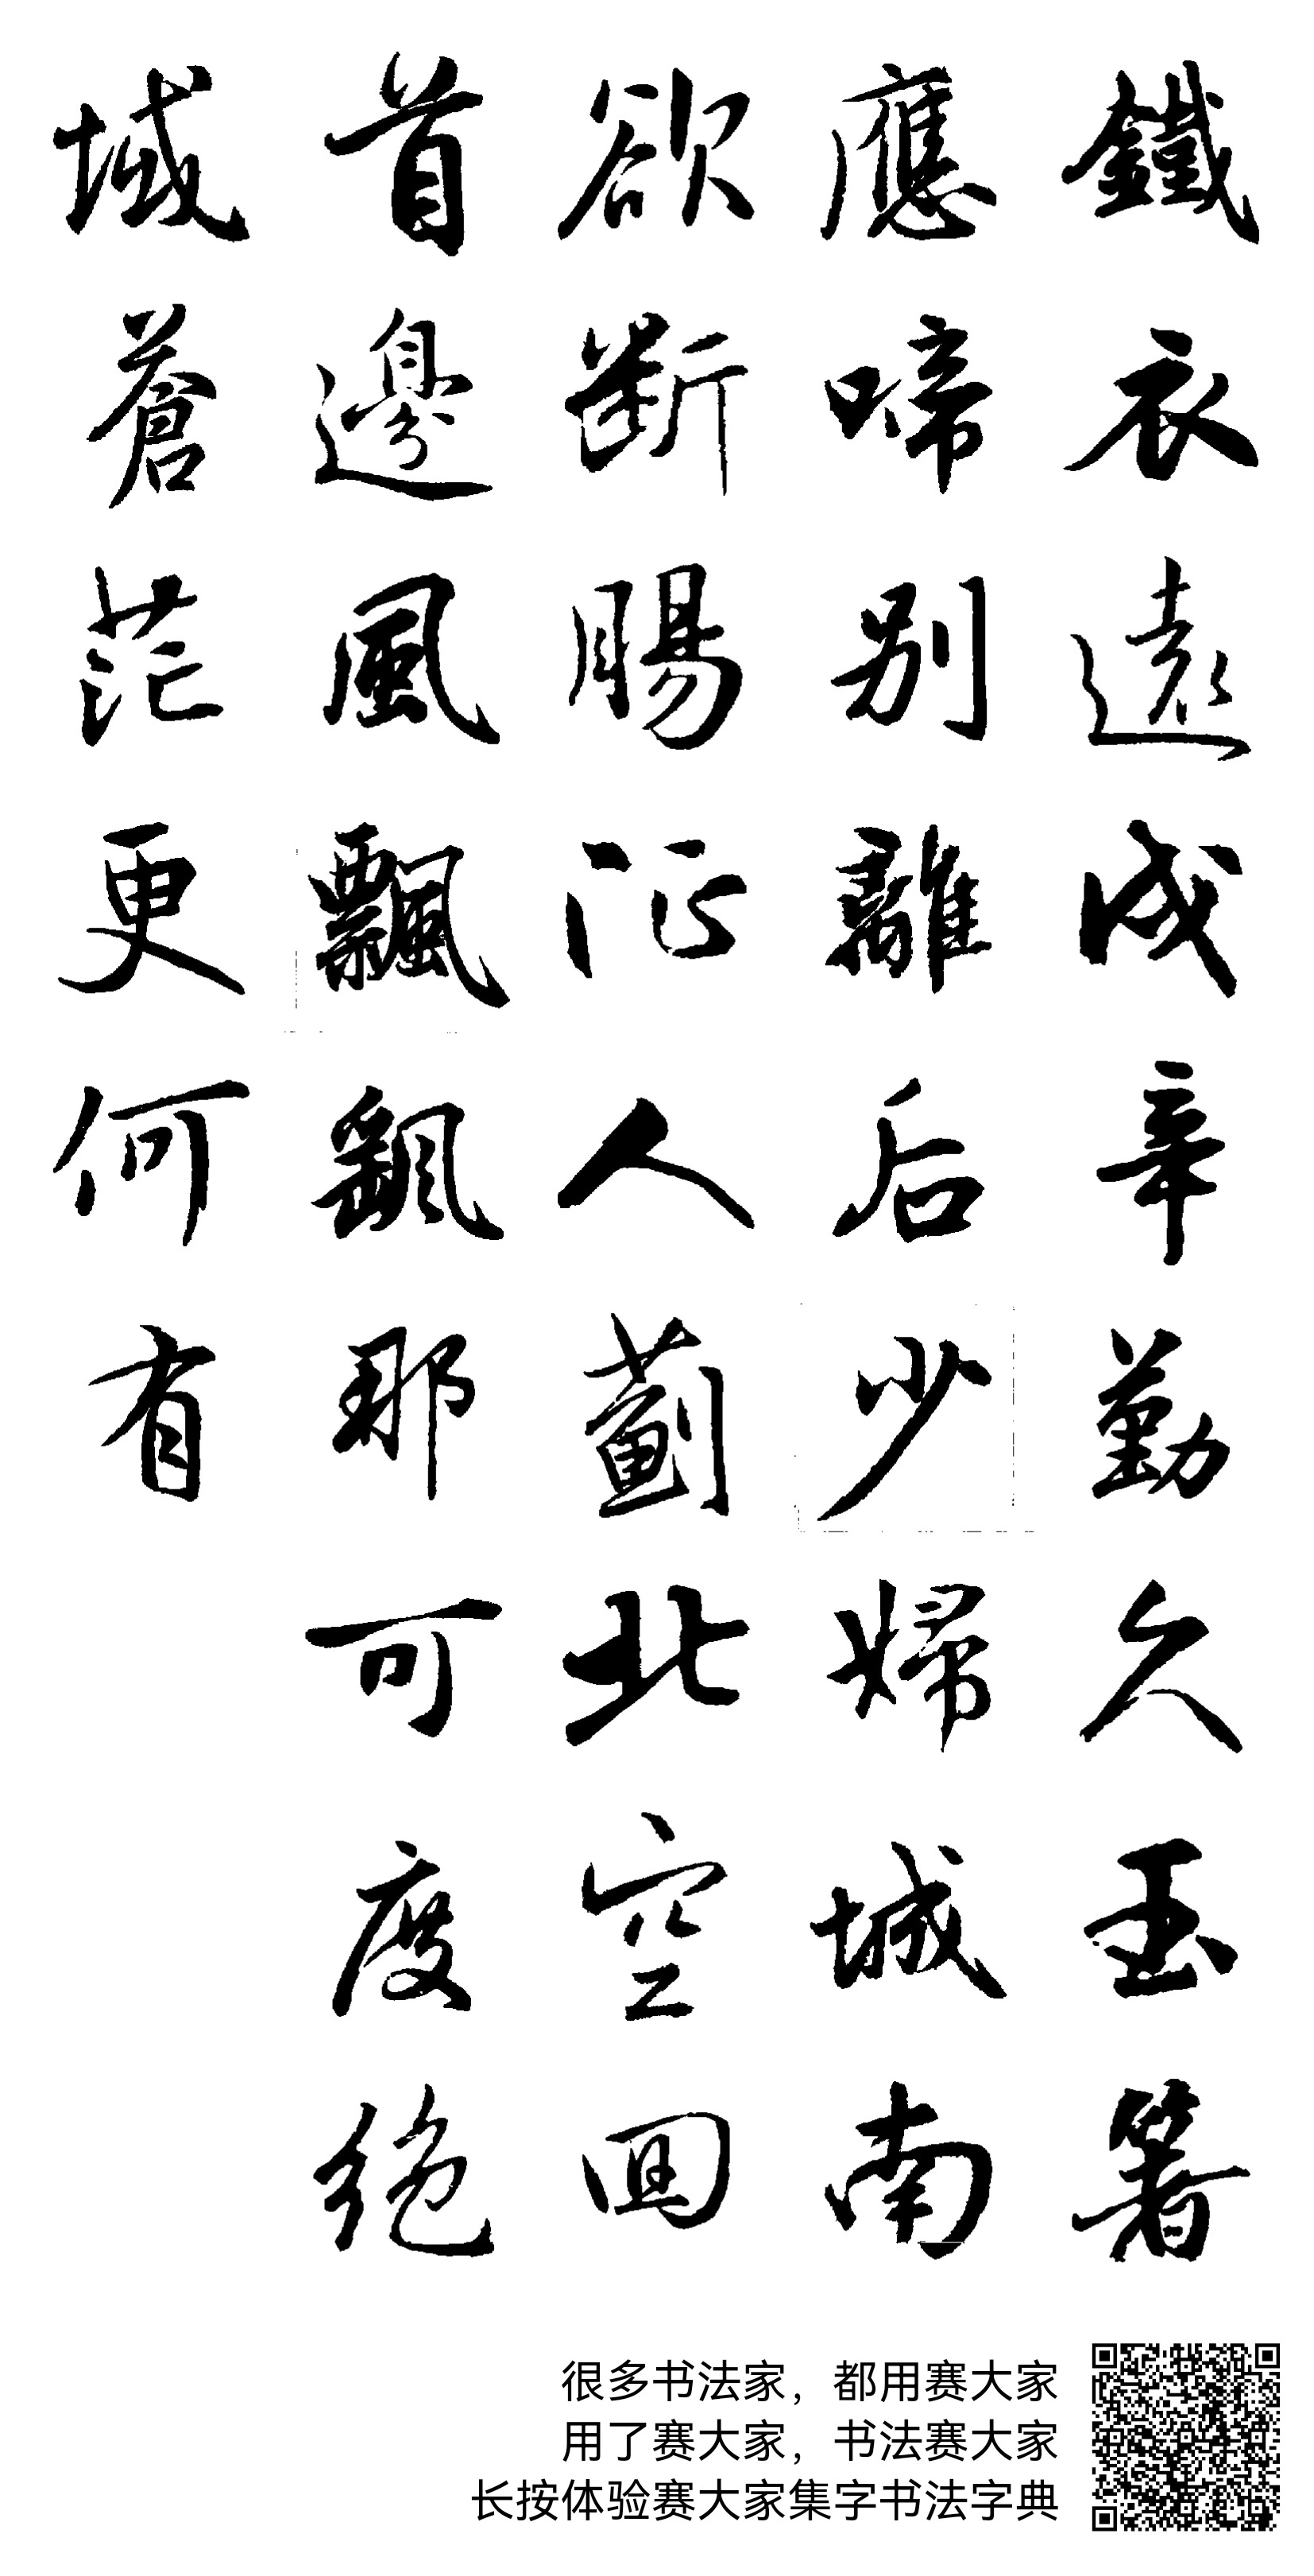 鐵衣遠戍辛勤久玉箸
應啼别離后少婦城南
欲断腸征人薊北空回
首邊風飄飖那可度絶
域蒼茫更何有
很多书法家，都用赛大家
用了赛大家，书法赛大家
长按体验赛大家集字书法字典